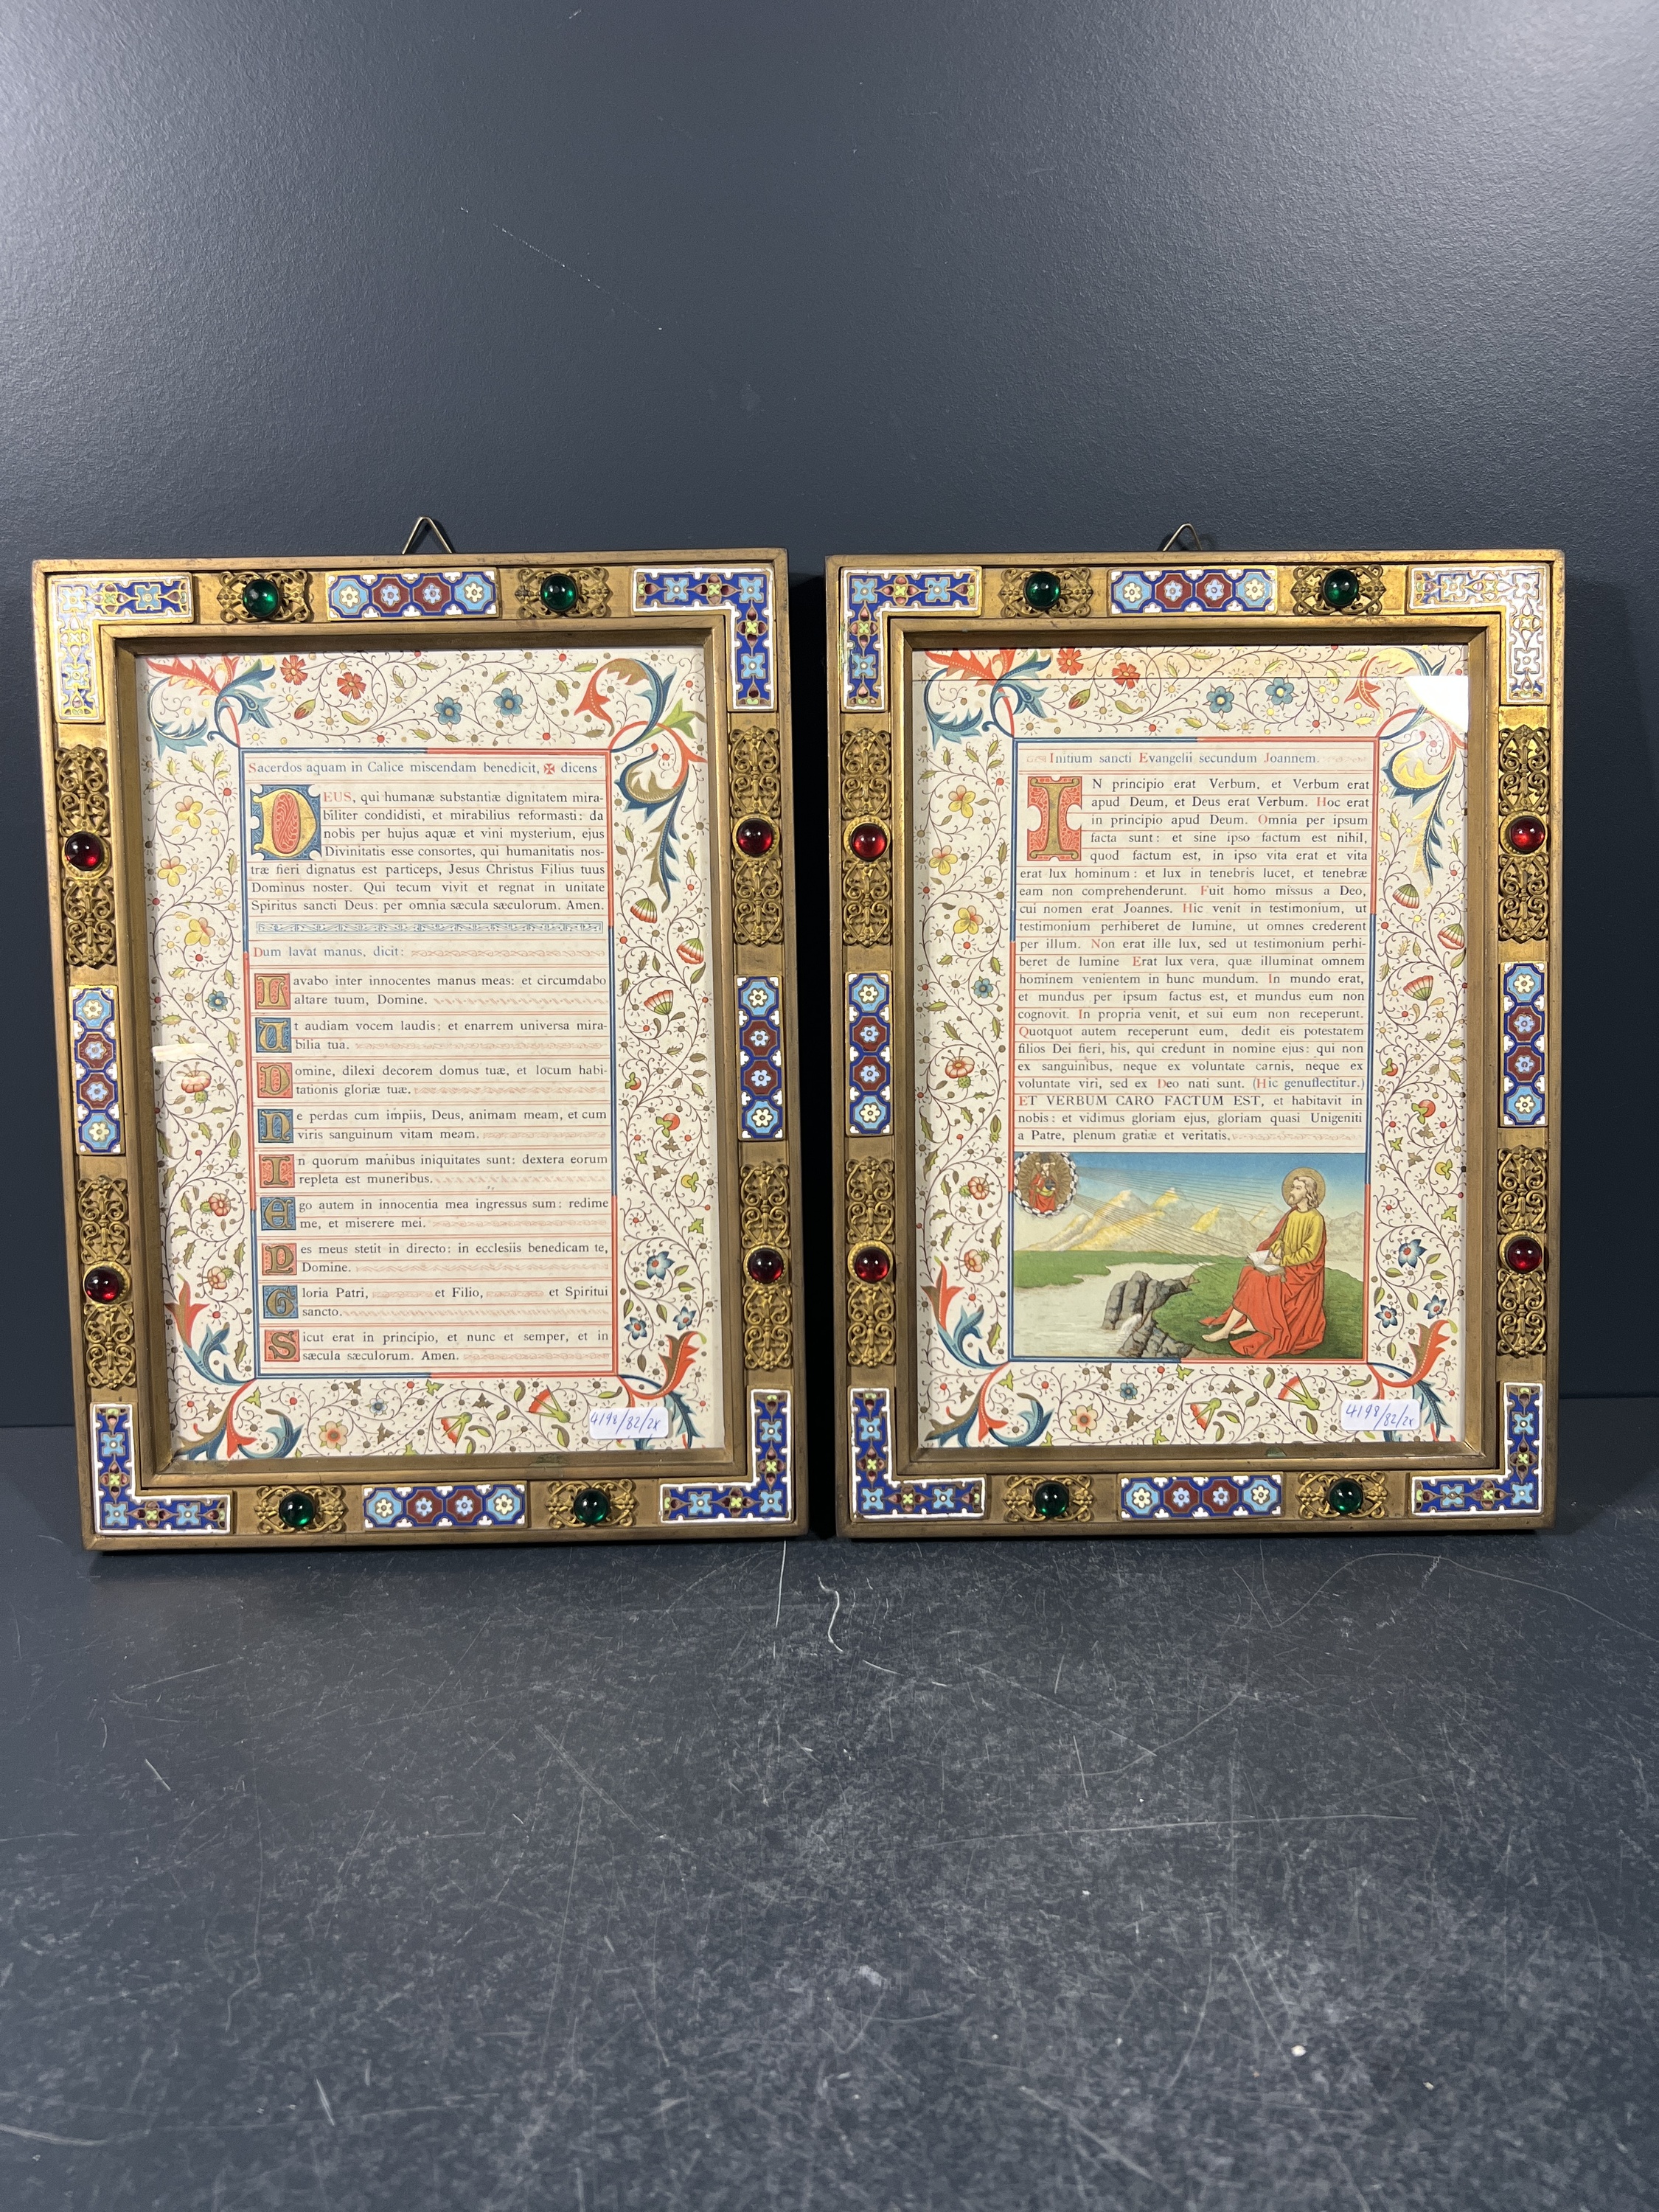 Sacerdos aquam in Calice miscendam benedicit, ✠ dicens
DEUS, qui humanæ substantiæ dignitatem mira-
biliter condidisti, et mirabilius reformasti: da
nobis per hujus aquæ et vini mysterium, ejus
Divinitatis esse consortes, qui humanitatis nos-
træ fieri dignatus est particeps, Jesus Christus Filius tuus
Dominus noster. Qui tecum vivit et regnat in unitate
Spiritus sancti Deus: per omnia sæcula sæculorum. Amen.
Dum lavat manus, dicit:
Lavabo inter innocentes manus meas: et circumdabo
altare tuum, Domine.
Ut audiam vocem laudis: et enarrem universa mira-
bilia tua.
Domine, dilexi decorem domus tuæ, et locum habi-
tationis gloriæ tuæ.
Ne perdas cum impiis, Deus, animam meam, et cum
viris sanguinum vitam meam.
In quorum manibus iniquitates sunt: dextera eorum
repleta est muneribus.
Ego autem in innocentia mea ingressus sum: redime
me, et miserere mei.
Pes meus stetit in directo: in ecclesiis benedicam te,
Domine.
Gloria Patri, et Filio, et Spiritui
sancto.
Sicut erat in principio, et nunc et semper, et in
sæcula sæculorum. Amen.
4198/82/2x
Initium sancti Evangelii secundum Joannem.
IN principio erat Verbum, et Verbum erat
apud Deum, et Deus erat Verbum. Hoc erat
in principio apud Deum. Omnia per ipsum
facta sunt: et sine ipso factum est nihil,
quod factum est, in ipso vita erat et vita
erat lux hominum: et lux in tenebris lucet, et tenebræ
eam non comprehenderunt. Fuit homo missus a Deo,
cui nomen erat Joannes. Hic venit in testimonium, ut
testimonium perhiberet de lumine, ut omnes crederent
per illum. Non erat ille lux, sed ut testimonium perhi-
beret de lumine Erat lux vera, quæ illuminat omnem
hominem venientem in hunc mundum. In mundo erat,
et mundus per ipsum factus est, et mundus eum non
cognovit. In propria venit, et sui eum non receperunt.
Quotquot autem receperunt eum, dedit eis potestatem
filios Dei fieri, his, qui credunt in nomine ejus: qui non
ex sanguinibus, neque ex voluntate carnis, neque ex
voluntate viri, sed ex Deo nati sunt. (Hic genuflectitur.)
ET VERBUM CARO FACTUM EST, et habitavit in
nobis: et vidimus gloriam ejus, gloriam quasi Unigeniti
a Patre, plenum gratiæ et veritatis.
4198/82/2x